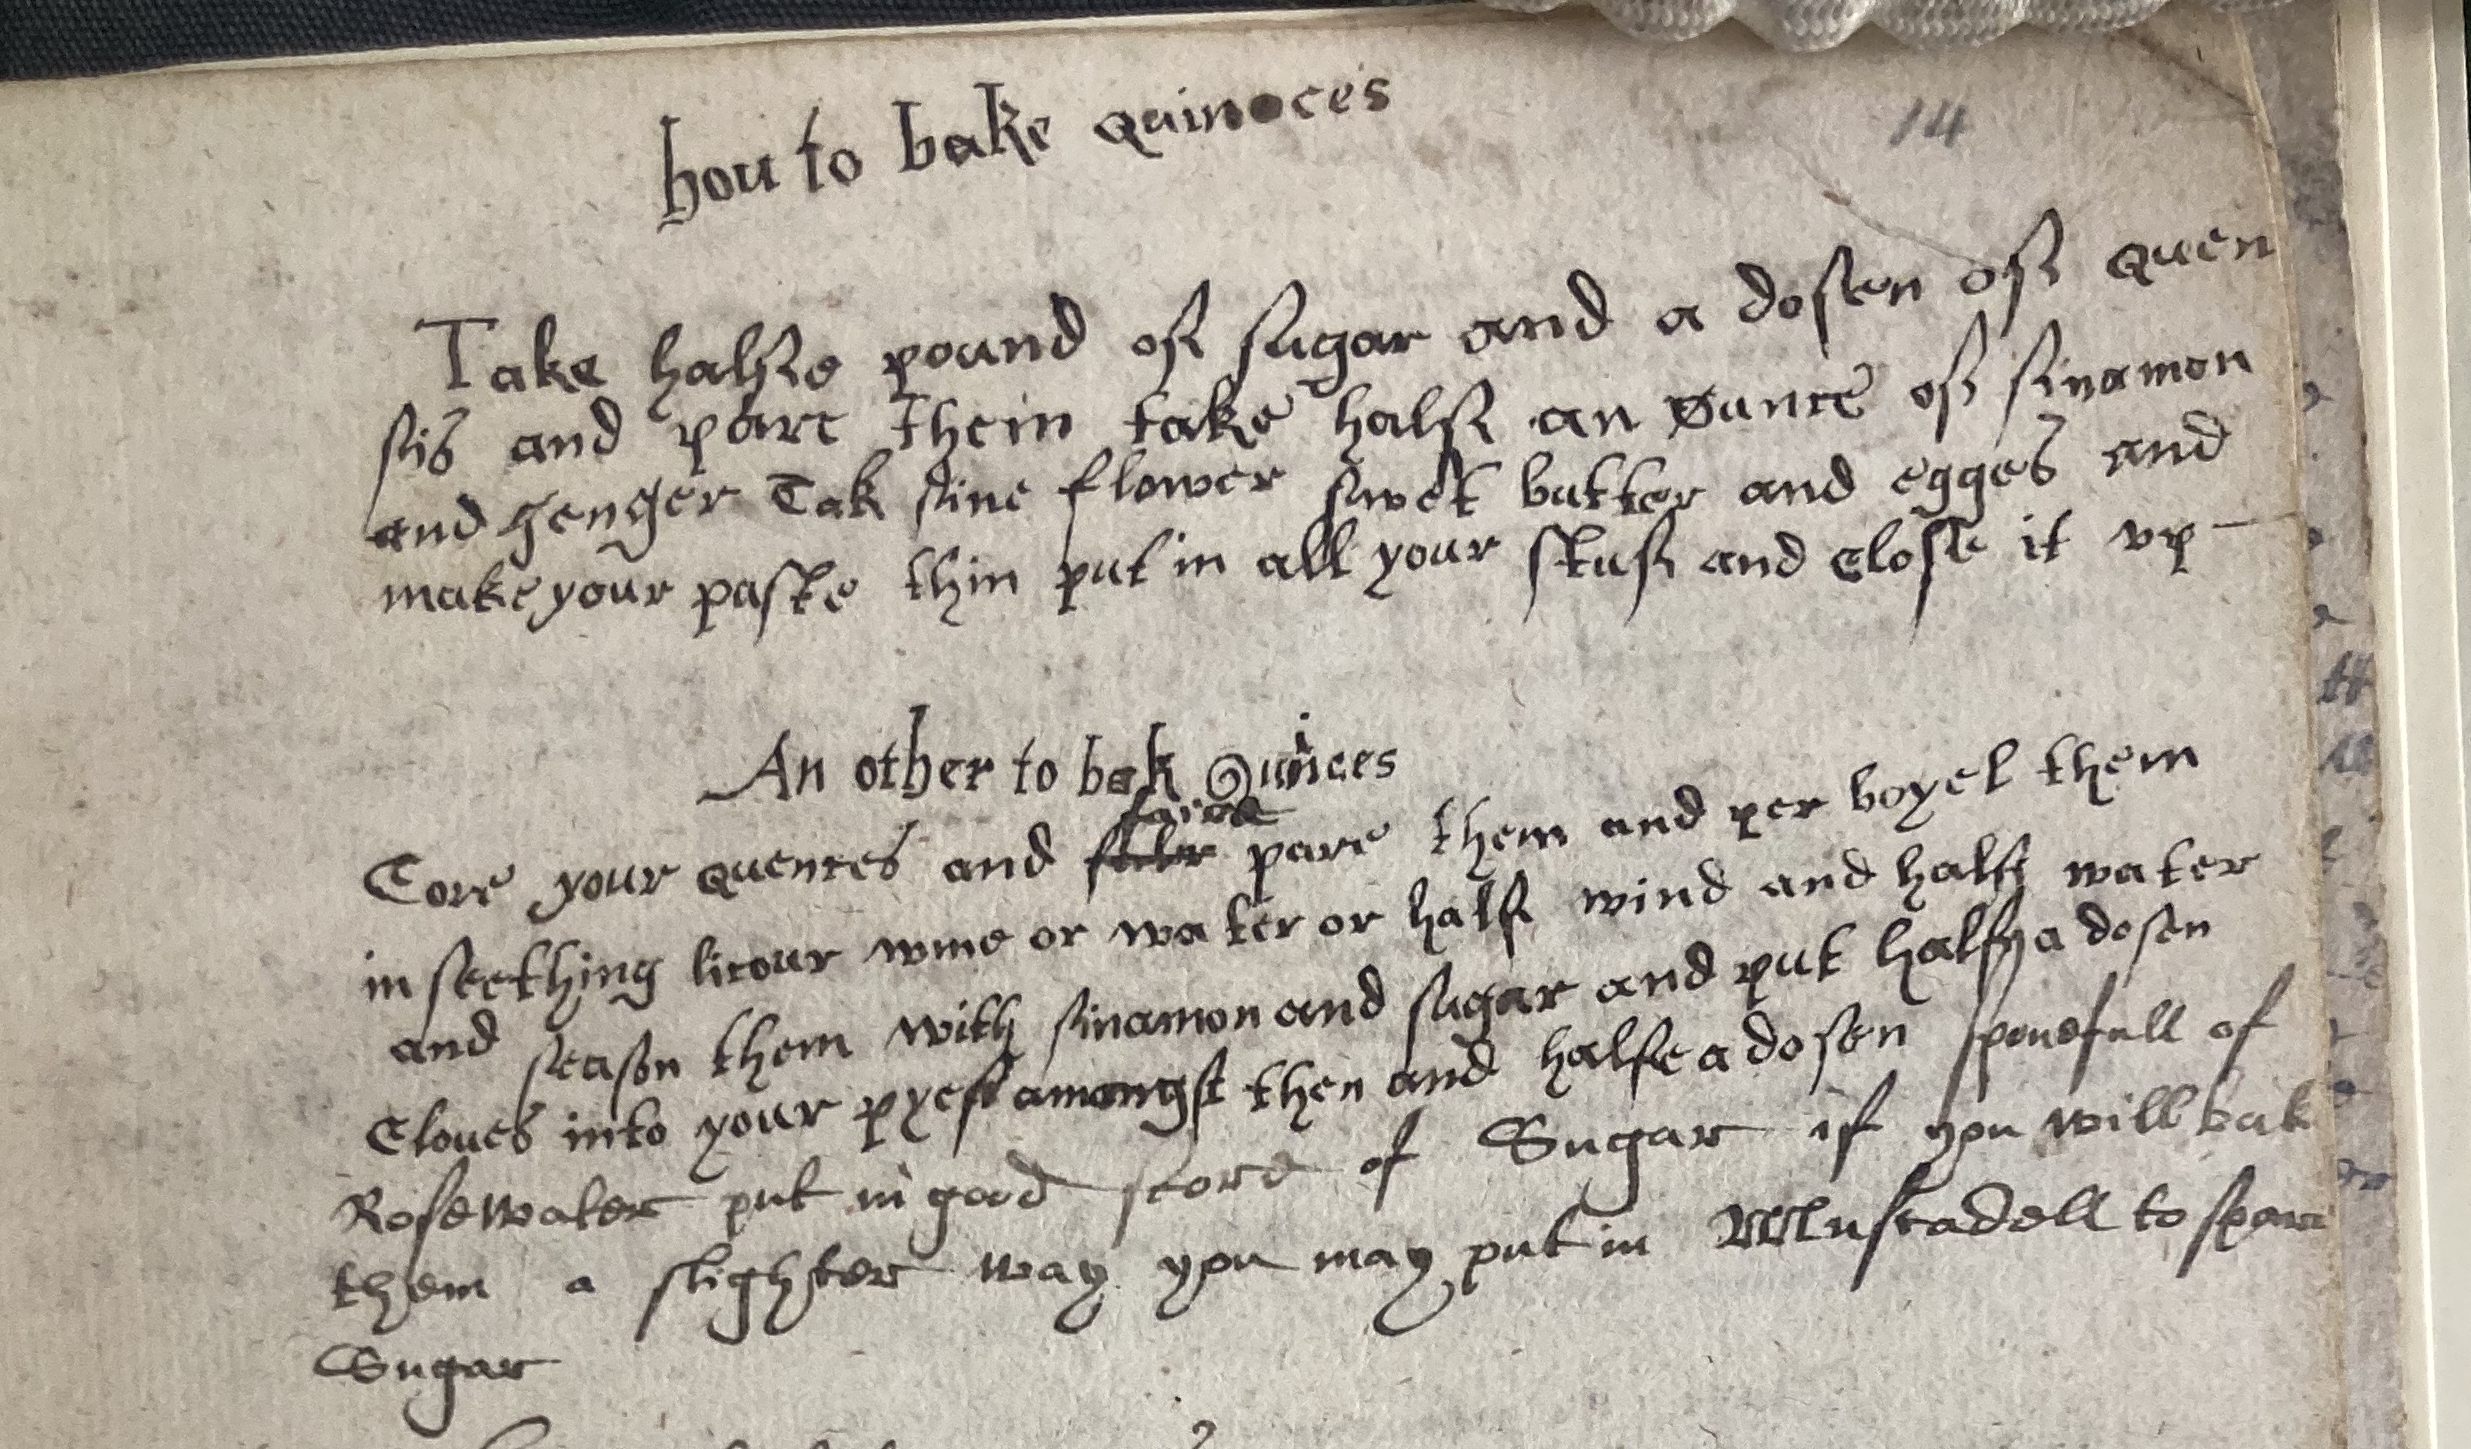 hou to bake quinces
14
Take halfe pound of sugar and a dosen of quen
sis and pare them take half an ounce of sinamon
and genger Tak fine flower swet butter and egges and
make your paste thin put in all your stuf and close it vp
An other to bak Quinces
faire
Core your quences and pare them and per boyel them
in seething licour wine or water or half wind and half water
and season them with sinamon and sugar and put halfe a dosen
Cloues into your pyes amongst then and halfe a dosen sponefull of
Rosewater put in good store of Sugar if you will bak
them a slighter way you may put in Muscadell to spare
Sugar